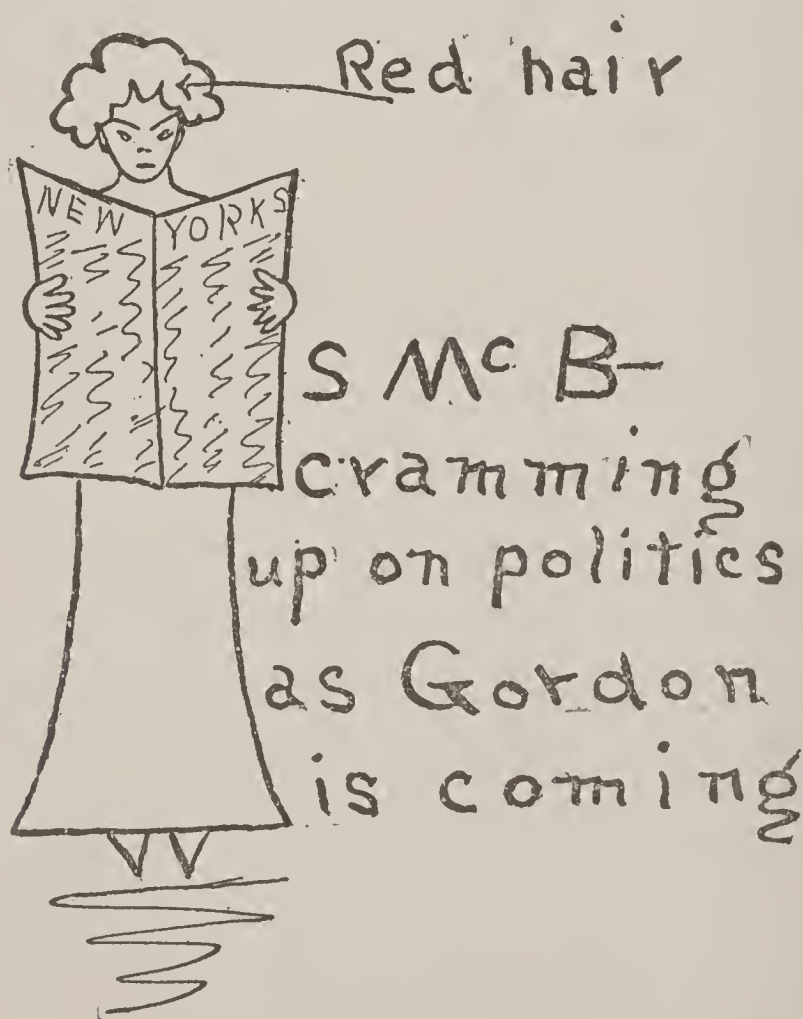 Red hair
NEW YORKS
S McB—
cramming
up on politics
as Gordon
is coming